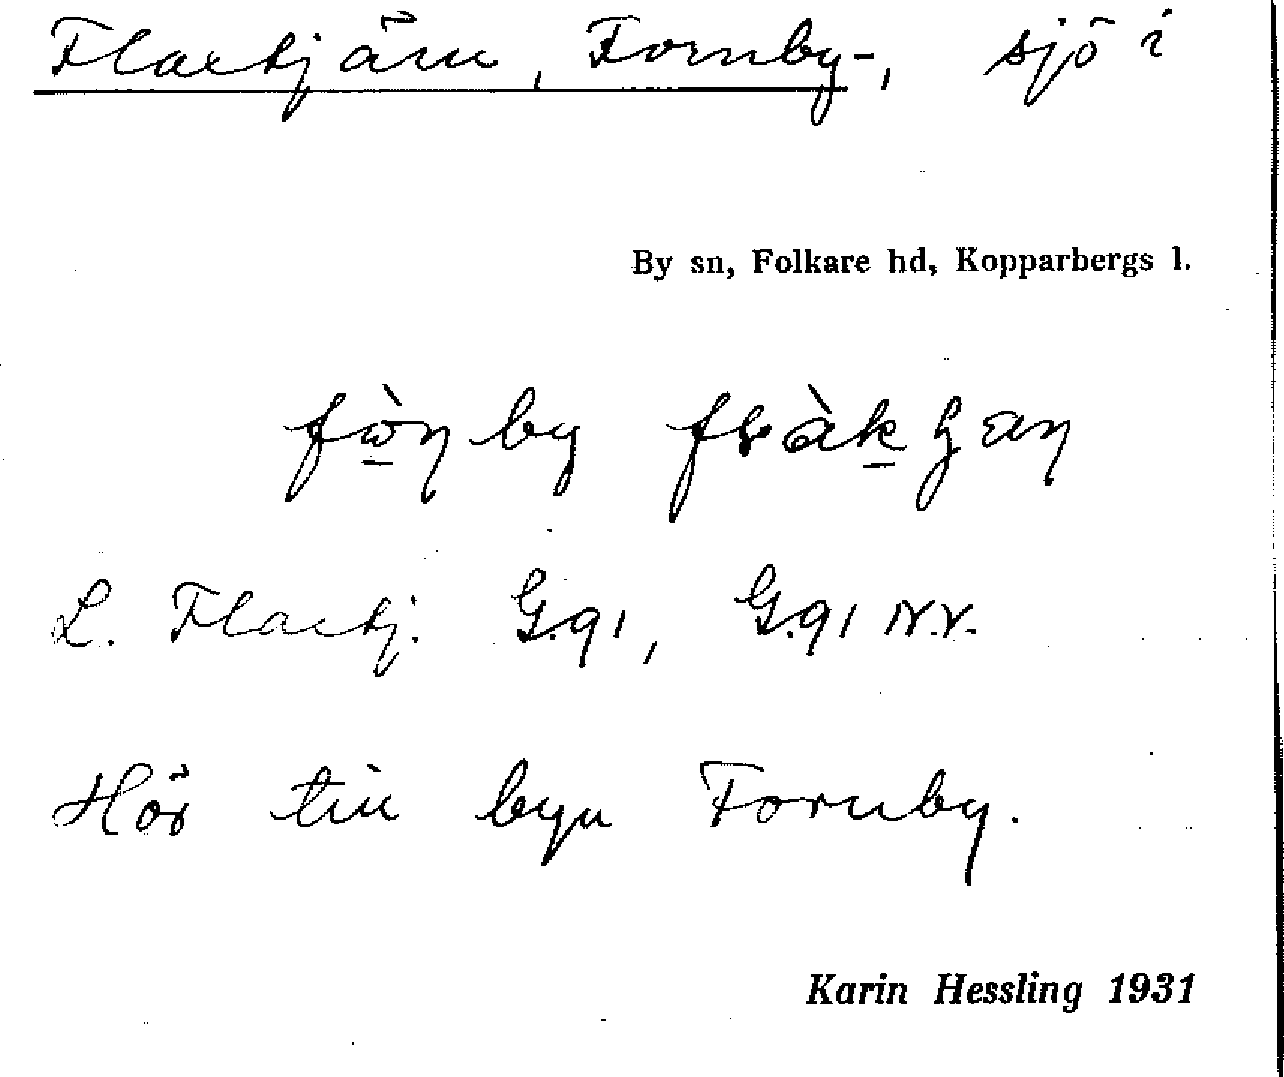 Flactjärn, Fornby-, sjö i
By sn, Folkare hd, Kopparbergs l.
L. Flactj. G.91, G.91 N.V.
Hör till byn Fornby.
Karin Hessling 1931